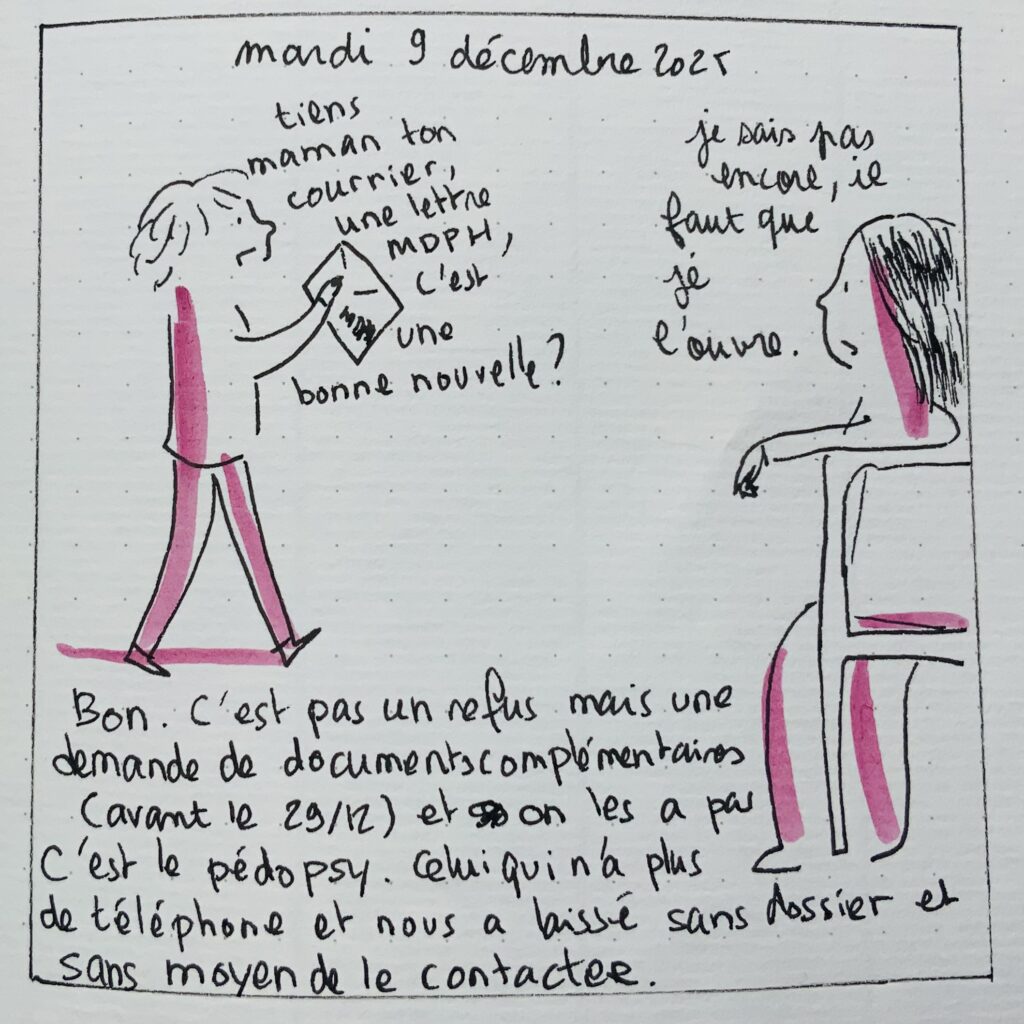 mardi 9 décembre 2025
tiens
maman ton
courrier,
une lettre
MDPH,
c'est
une
bonne nouvelle?
MDPH
je sais pas
encore, il
faut que
je
l'ouvre.
Bon. C'est pas un refus mais une
demande de documents complémentaires
(avant le 29/12) et on les a pas
C'est le pédopsy. Celui qui n'a plus
de téléphone et nous a laissé sans dossier et
sans moyen de le contacter.